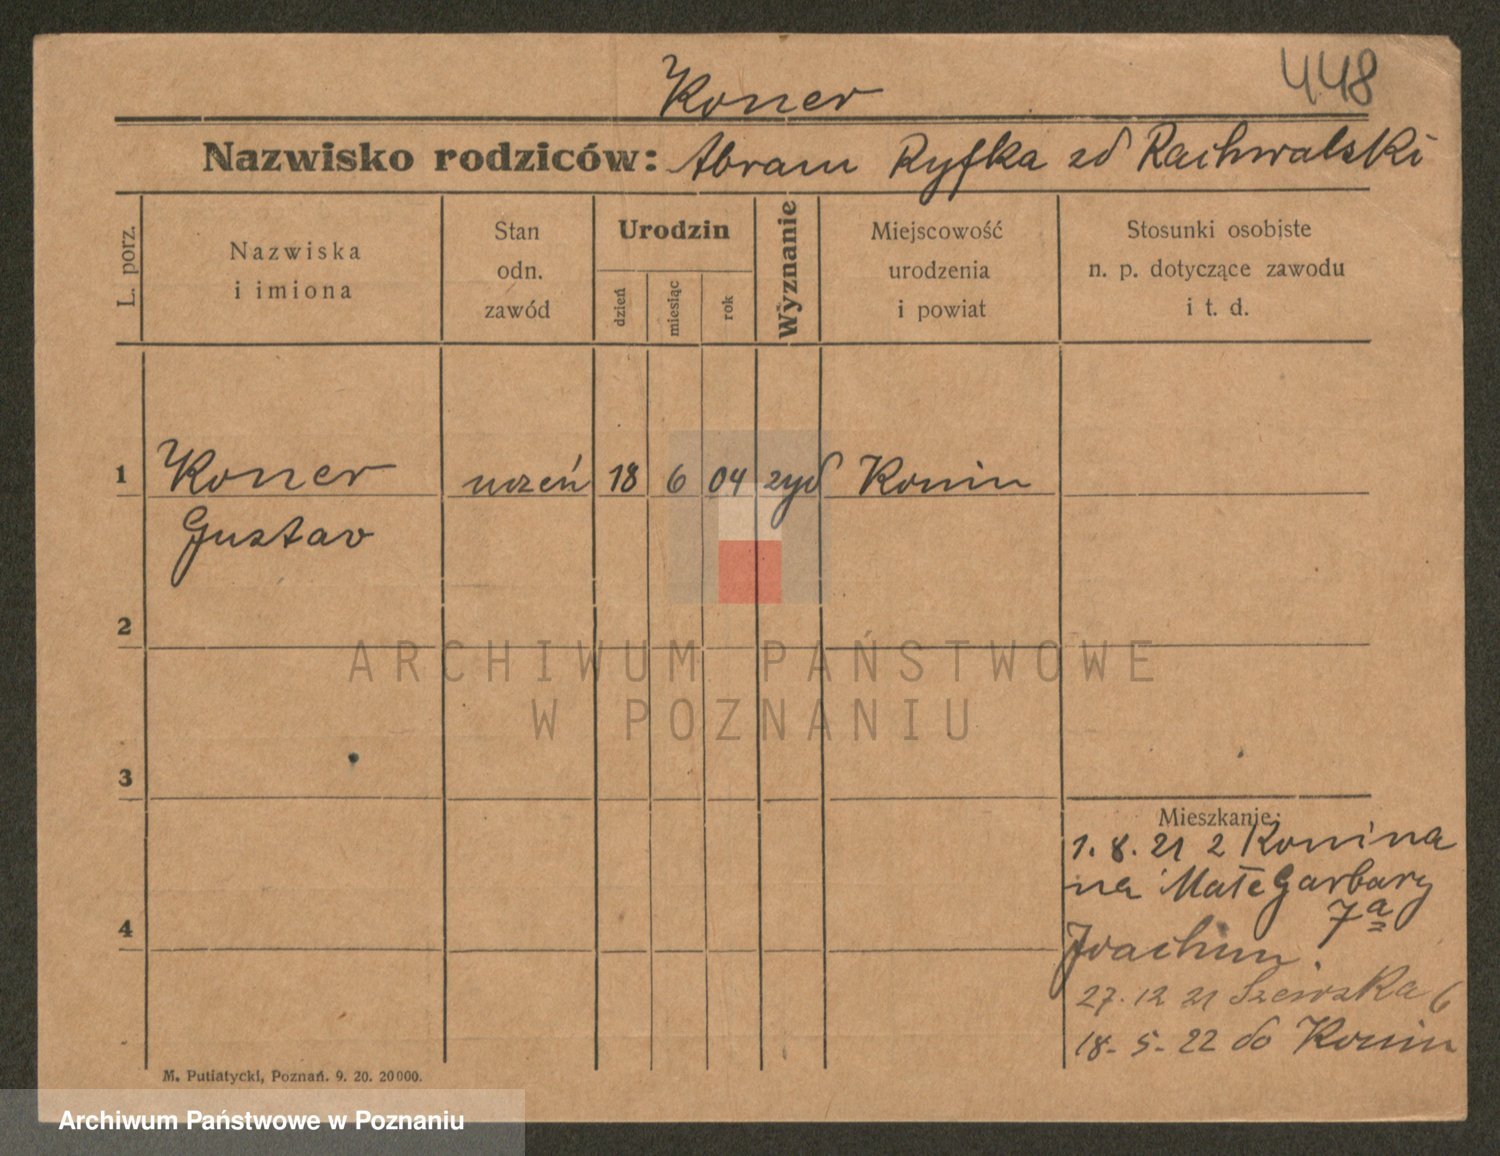 Koner
448
Nazwisko rodziców: Abram Ryfka zd Rachwalski
L. porz.
Nazwiska
i imiona
Stan
odn.
zawód
Urodzin
dzień
miesiąc
rok
Wyznanie
Miejscowość
urodzenia
i powiat
Stosunki osobiste
n. p. dotyczące zawodu
i t. d.
1 Koner uczeń 18 6 04 zyd Konin
Gustav
2
ARCHIWUM PAŃSTWOWE
W POZNANIU
3
Mieszkanie:
1.8.21 z Konina
na Małe Garbary
7a
Joachim.
4
27.12 21 Szewska 6
18-5-22 do Konin
M. Putiatycki, Poznań. 9. 20. 20000.
Archiwum Państwowe w Poznaniu